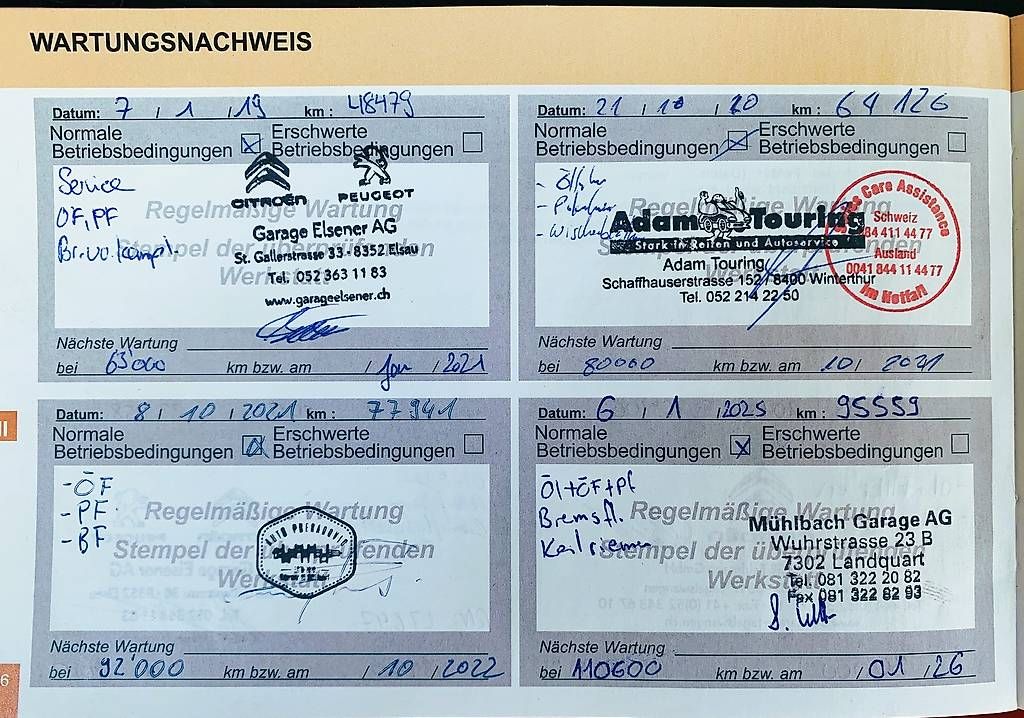 WARTUNGSNACHWEIS
Datum: 7 / 1 / 19 km : 48479
Normale Betriebsbedingungen
Erschwerte Betriebsbedingungen
Service
ÖF, PF
CITROËN
PEUGEOT
Regelmäßige Wartung
Garage Elsener AG
Stempel der überprüfenden
St. Gallerstrasse 33 - 8352 Elsau
Werkstatt
Tel. 052 363 11 83
www.garageelsener.ch
Nächste Wartung
bei 63'000 km bzw. am / Jan / 2021
Datum: 21 / 10 / 20 km : 64 126
Normale Betriebsbedingungen
Erschwerte Betriebsbedingungen
Regelmäßige Wartung
Adam Touring
Stark in Reifen und Autoservice
Stempel der überprüfenden
Werkstatt
Adam Touring
Schaffhauserstrasse 152 / 8400 Winterthur
Tel. 052 214 22 50
Care Assistance
Schweiz
84 411 44 77
Ausland
0041 844 11 44 77
Im Notfall
Nächste Wartung
bei 80000 km bzw. am 10 / 2021
Datum: 8 / 10 / 2021 km : 77941
Normale Betriebsbedingungen
Erschwerte Betriebsbedingungen
- ÖF
- PF
- BF
Regelmäßige Wartung
Stempel der überprüfenden
Werkstatt
AUTO
Nächste Wartung
bei 92'000 km bzw. am / 10 / 2022
Datum: 6 / 1 / 2025 km : 95559
Normale Betriebsbedingungen
Erschwerte Betriebsbedingungen
Öl+ÖF+PF
Bremsfl.
Keilriemen
Regelmäßige Wartung
Stempel der überprüfenden
Werkstatt
Mühlbach Garage AG
Wuhrstrasse 23 B
7302 Landquart
Tel. 081 322 20 82
Fax 081 322 82 93
Nächste Wartung
bei 110600 km bzw. am / 01 / 26
II
6